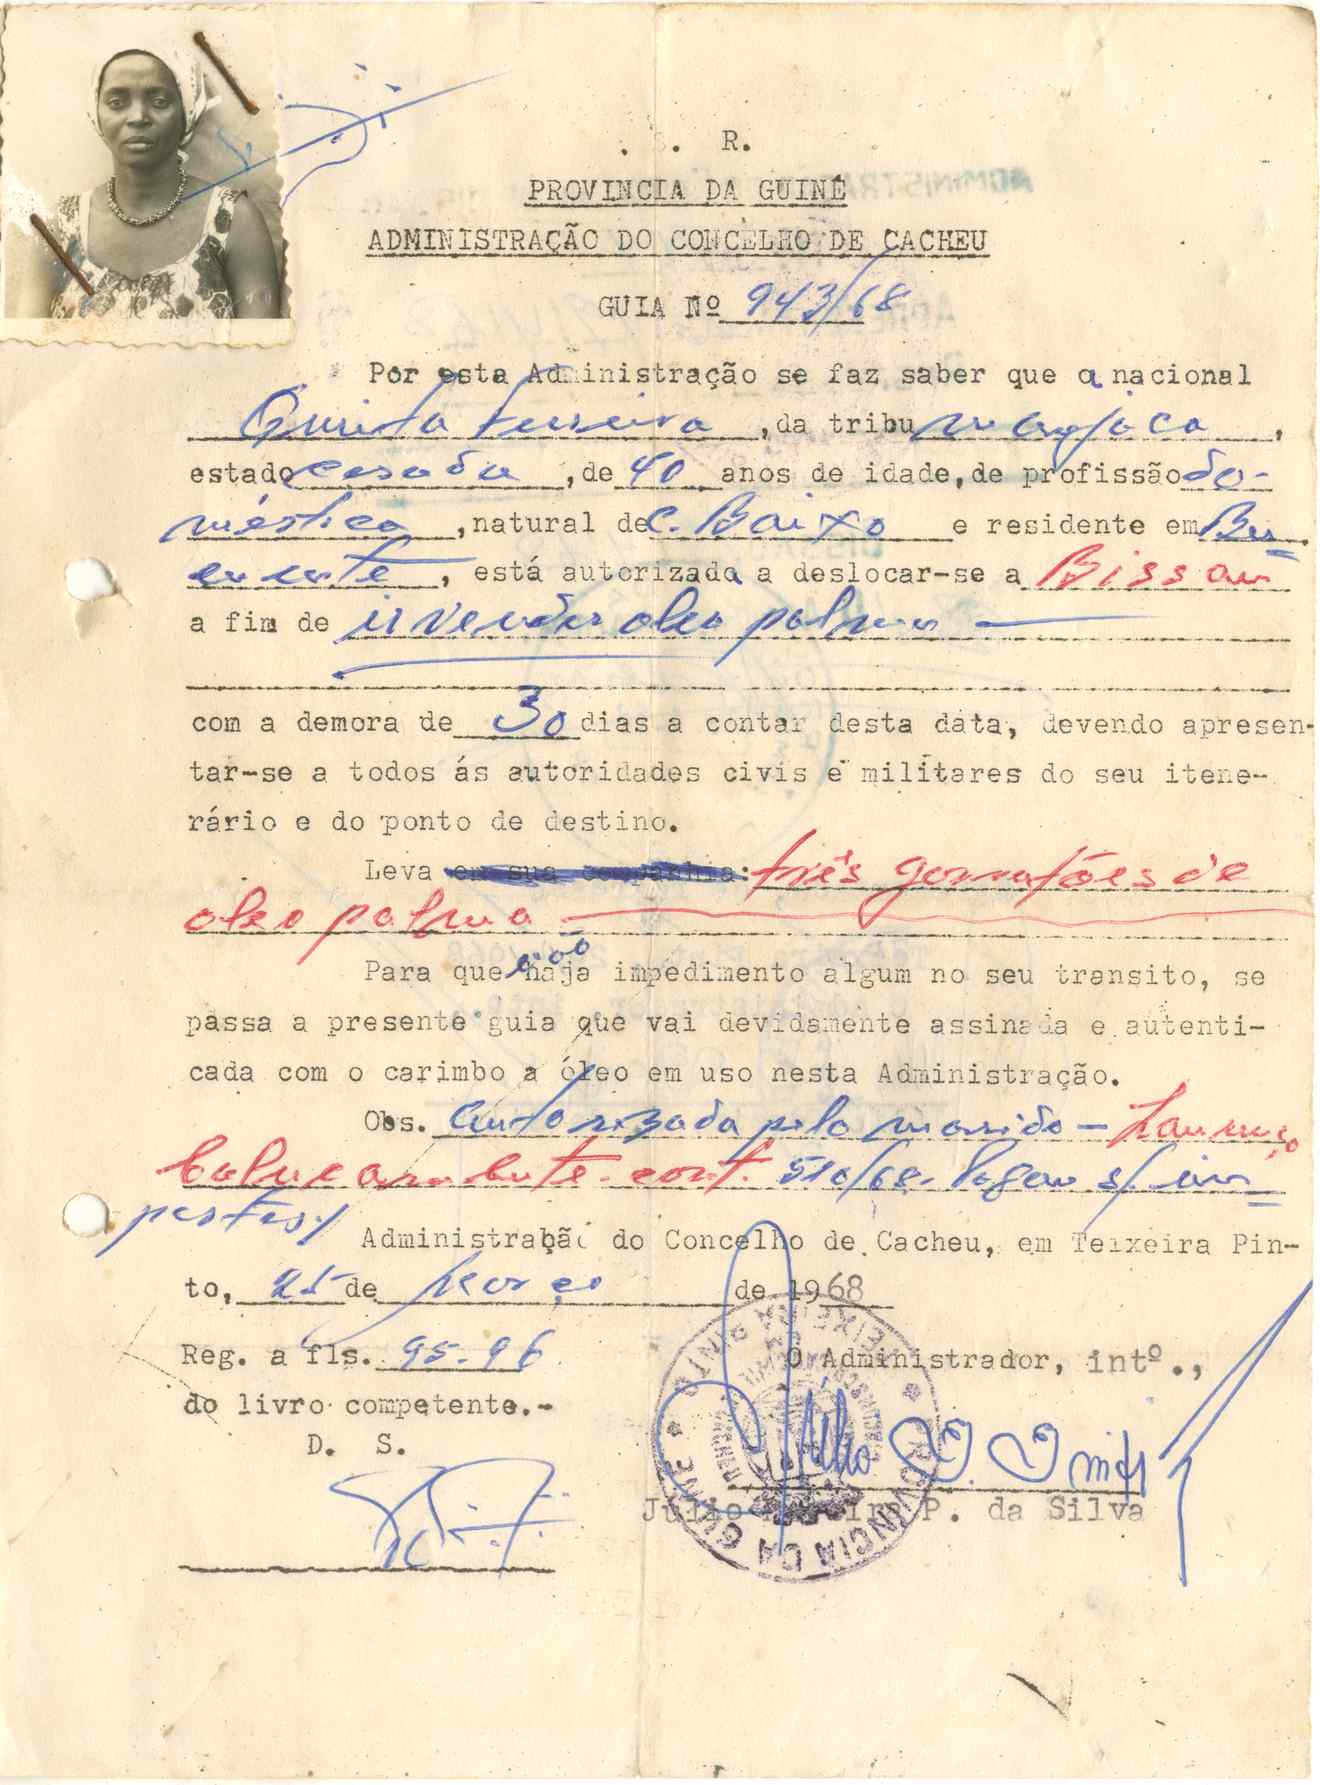 . S. R.
PROVINCIA DA GUINÉ
ADMINISTRAÇÃO DO CONCELHO DE CACHEU
GUIA Nº 943/68
Por esta Administração se faz saber que a nacional
Quinta Ferreira, da tribu manjaca,
estado casada, de 40 anos de idade, de profissão do-
méstica, natural de C. Baixo e residente em Bu-
, está autorizada a deslocar-se a Bissau
a fim de ir vender oleo palma
com a demora de 30 dias a contar desta data, devendo apresen-
tar-se a todos ás autoridades civis e militares do seu itene-
rário e do ponto de destino.
Leva em sua companhia: três garrafões de
oleo palma
Para que não haja impedimento algum no seu transito, se
passa a presente guia que vai devidamente assinada e autenti-
cada com o carimbo a óleo em uso nesta Administração.
Obs. Autorizada pelo marido -
cont. 510/68. Pagou s/ im=
postos/
Administração do Concelho de Cacheu, em Teixeira Pin-
to, 25 de Março de 1968
Reg. a fls. 95-96
O Administrador, intº.,
do livro competente.-
D. S.
Júlio P. da Silva
PROVINCIA DA GUINÉ * TEIXEIRA PINTO *